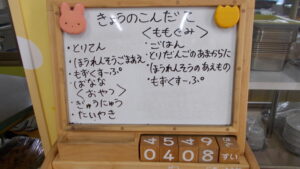 きょうのこんだて
・とりてん
・ほうれんそうごまあえ
・もずくすーぷ
・ばなな
＜おやつ＞
・ぎゅうにゅう
・たいやき
＜ももぐみ＞
・ごはん
・とりだんごのあまからに
・ほうれんそうのあえもの
・もずくすーぷ
4 5 4 9
0 4 0 8 すい